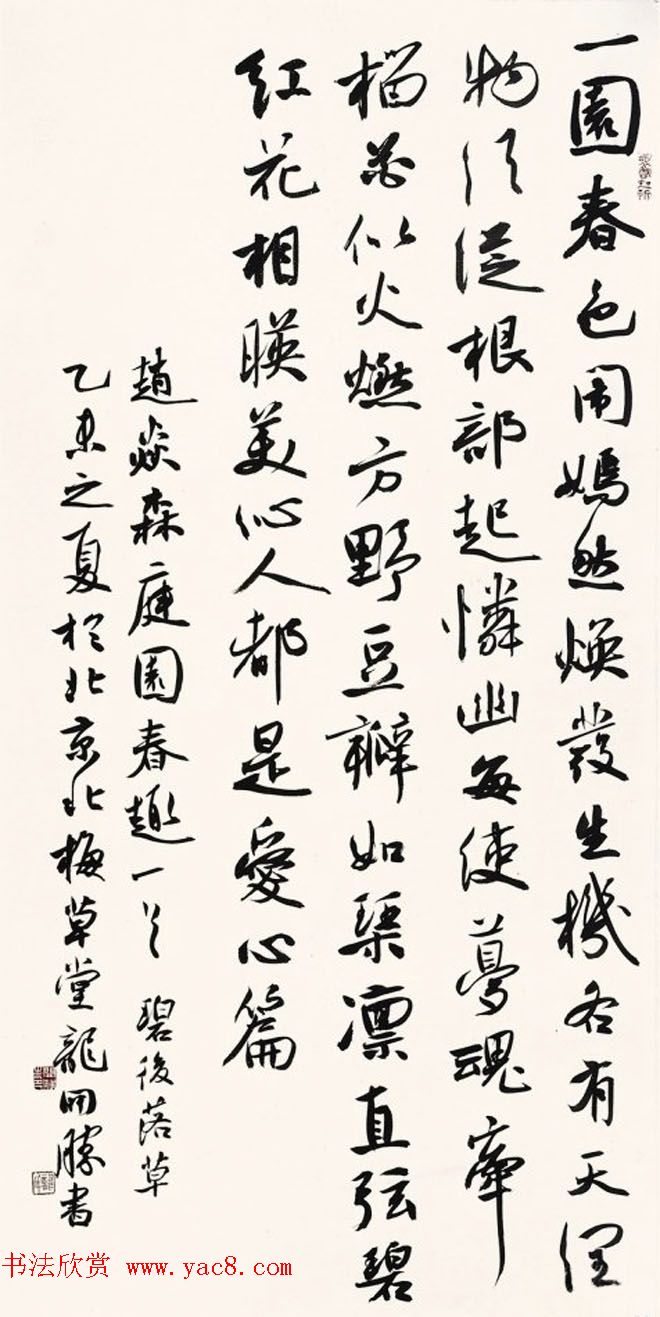 一園春色闹嫣然焕發生機各有天理
物须從根部起憐幽每使夢魂牽
榴花似火燃方野豆瓣如琹凛直弦碧
红花相暎美似人都是愛心篇
趙焱森庭園春趣一首 碧後落草
乙未之夏於北京北梅草堂龍開勝書
书法欣赏 www.yac8.com